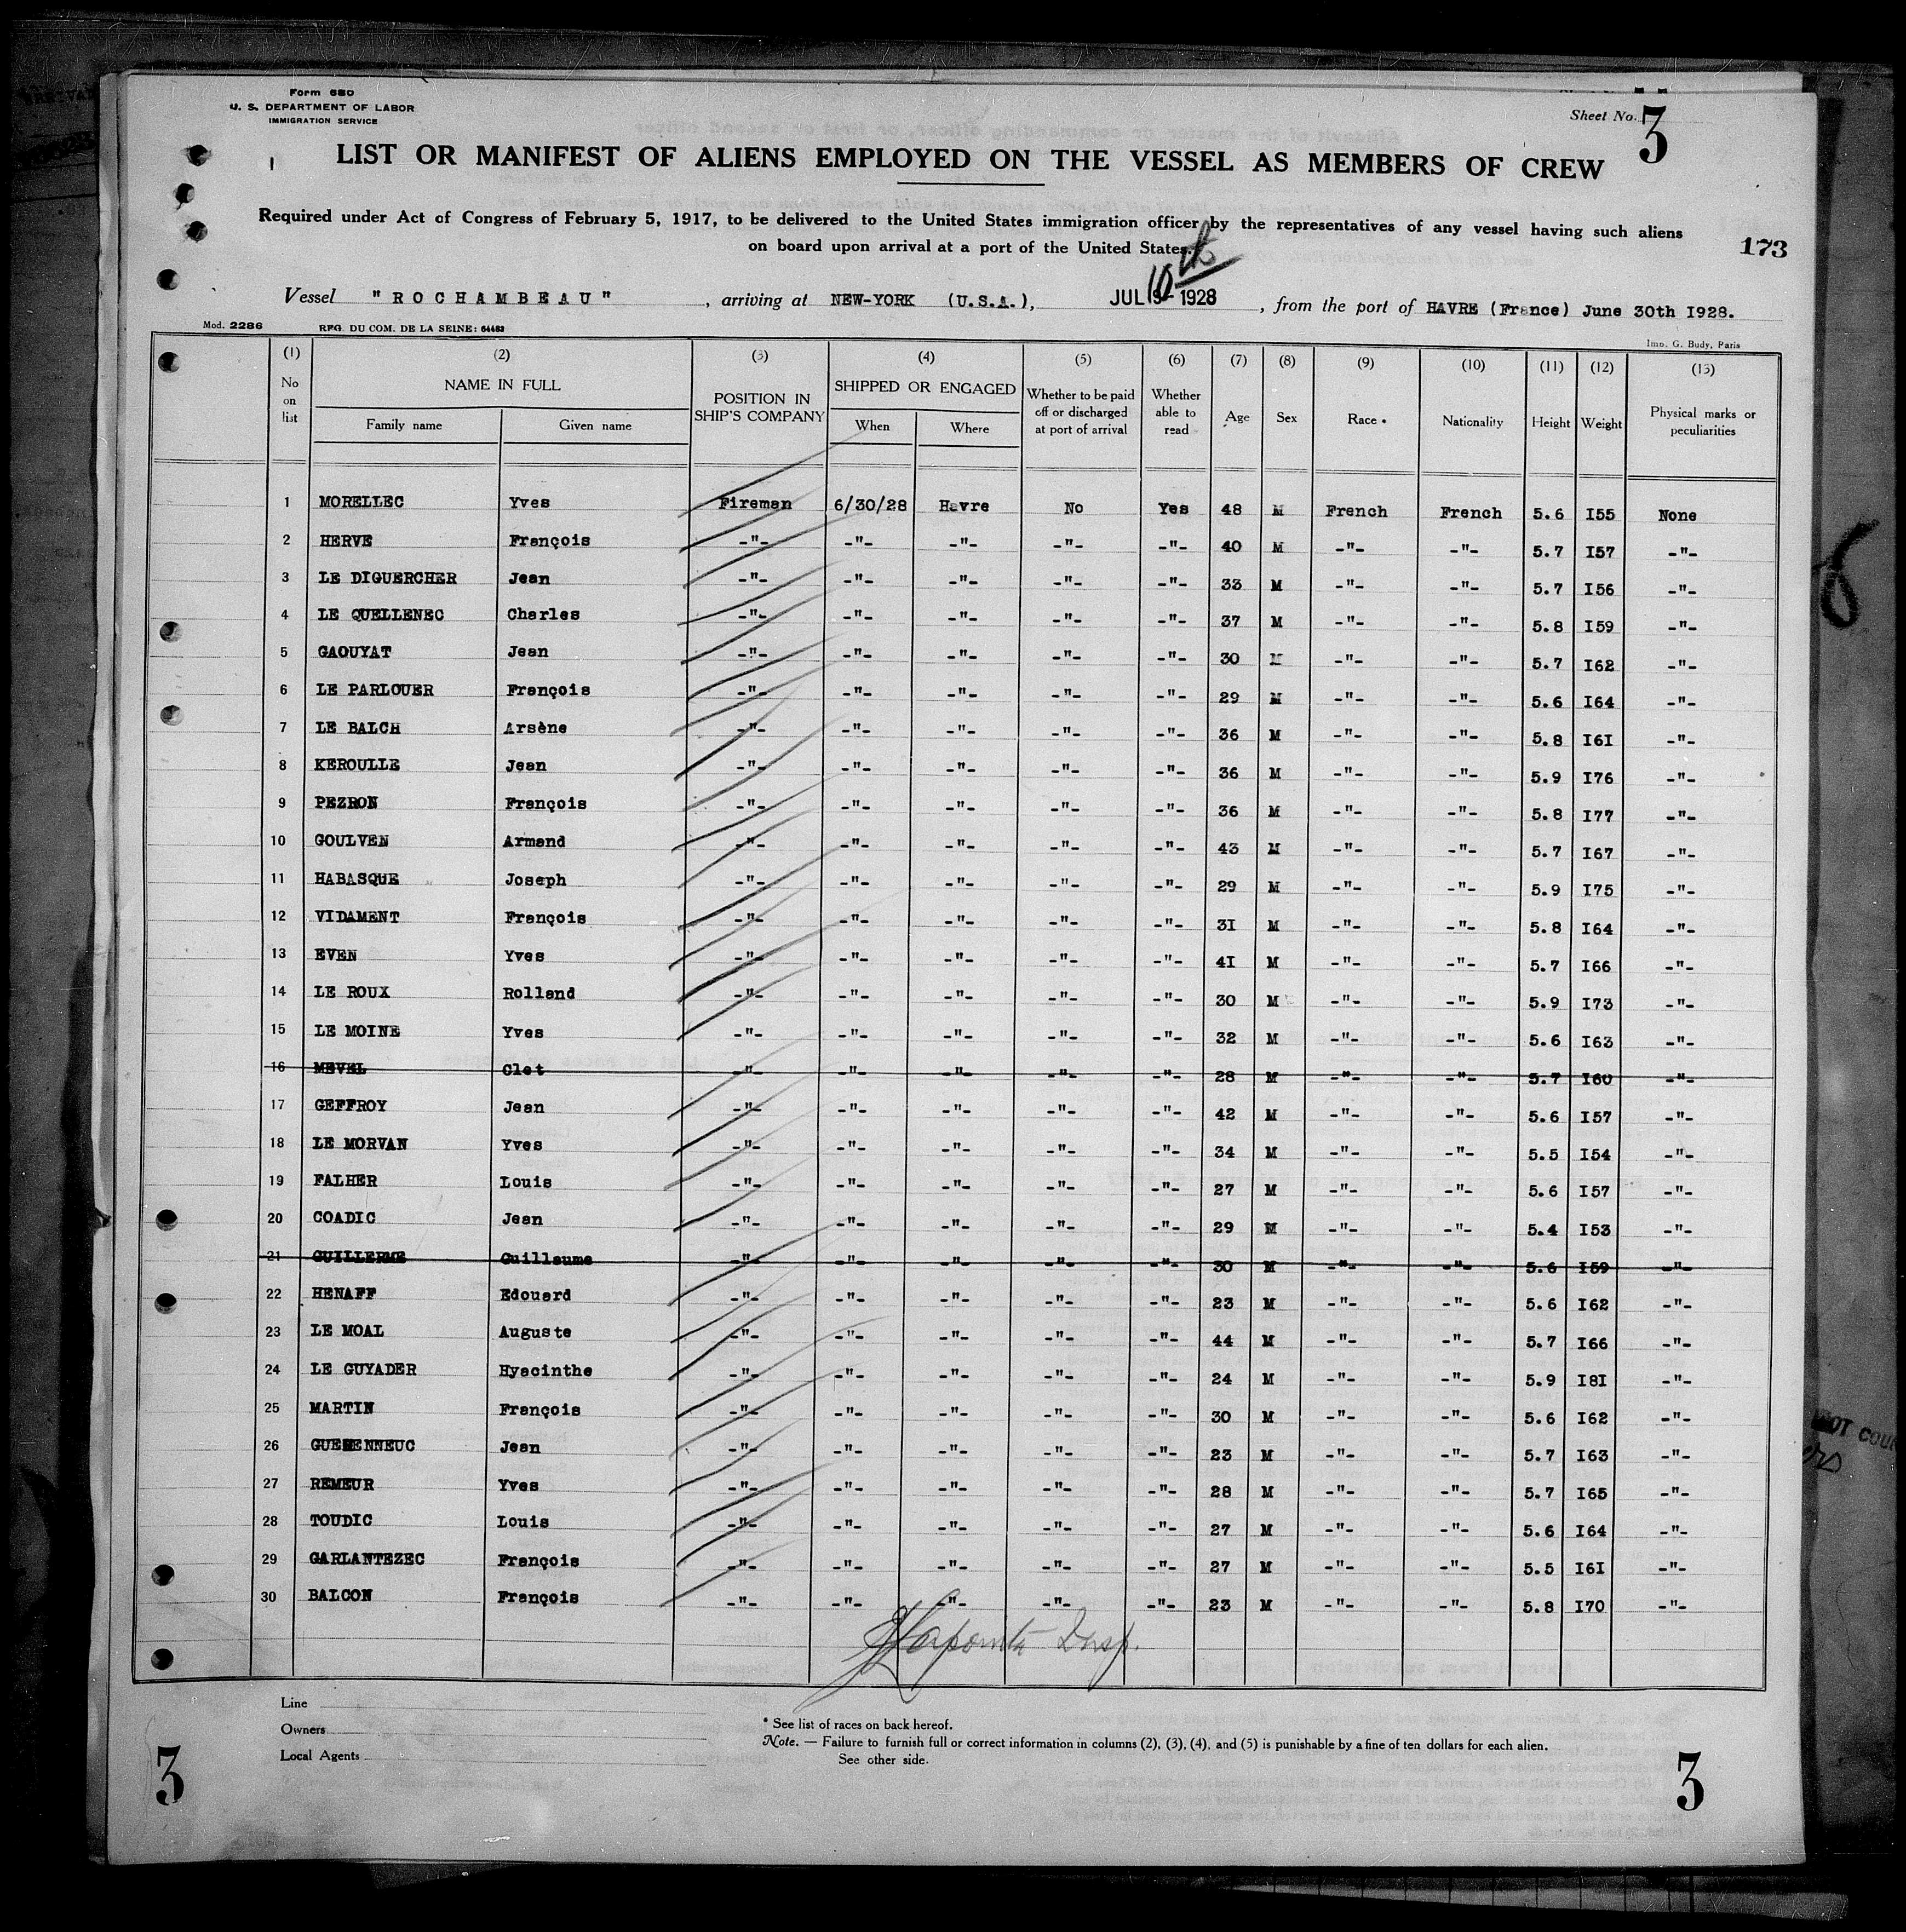 Form 680
U. S. DEPARTMENT OF LABOR
IMMIGRATION SERVICE
Sheet No. 3
LIST OR MANIFEST OF ALIENS EMPLOYED ON THE VESSEL AS MEMBERS OF CREW
Required under Act of Congress of February 5, 1917, to be delivered to the United States immigration officer by the representatives of any vessel having such aliens
on board upon arrival at a port of the United States.
173
10th
Vessel "ROCHAMBEAU", arriving at NEW-YORK (U.S.A.), JUL 9- 1928, from the port of HAVRE (France) June 30th I928.
Mod. 2286 REG. DU COM. DE LA SEINE: 64483 Imp. G. Budy, Paris
(1) (2) (3) (4) (5) (6) (7) (8) (9) (10) (11) (12) (13)
No on list NAME IN FULL Family name Given name POSITION IN SHIP'S COMPANY SHIPPED OR ENGAGED When Where Whether to be paid off or discharged at port of arrival Whether able to read Age Sex Race * Nationality Height Weight Physical marks or peculiarities
1 MORELLEC Yves Fireman 6/30/28 Havre No Yes 48 M French French 5.6 I55 None
2 HERVE François -"- -"- -"- -"- -"- 40 M -"- -"- 5.7 I57 -"-
3 LE DIGUERCHER Jean -"- -"- -"- -"- -"- 33 M -"- -"- 5.7 I56 -"-
4 LE QUELLENEC Charles -"- -"- -"- -"- -"- 37 M -"- -"- 5.8 I59 -"-
5 GAOUYAT Jean -"- -"- -"- -"- -"- 30 M -"- -"- 5.7 I62 -"-
6 LE PARLOUER François -"- -"- -"- -"- -"- 29 M -"- -"- 5.6 I64 -"-
7 LE BALCH Arsène -"- -"- -"- -"- -"- 36 M -"- -"- 5.8 I6I -"-
8 KEROULLE Jean -"- -"- -"- -"- -"- 36 M -"- -"- 5.9 I76 -"-
9 PEZRON François -"- -"- -"- -"- -"- 36 M -"- -"- 5.8 I77 -"-
10 GOULVEN Armand -"- -"- -"- -"- -"- 43 M -"- -"- 5.7 I67 -"-
11 HABASQUE Joseph -"- -"- -"- -"- -"- 29 M -"- -"- 5.9 I75 -"-
12 VIDAMENT François -"- -"- -"- -"- -"- 3I M -"- -"- 5.8 I64 -"-
13 EVEN Yves -"- -"- -"- -"- -"- 4I M -"- -"- 5.7 I66 -"-
14 LE ROUX Rolland -"- -"- -"- -"- -"- 30 M -"- -"- 5.9 I73 -"-
15 LE MOINE Yves -"- -"- -"- -"- -"- 32 M -"- -"- 5.6 I63 -"-
16 MEVEL Clet -"- -"- -"- -"- -"- 28 M -"- -"- 5.7 I60 -"-
17 GEFFROY Jean -"- -"- -"- -"- -"- 42 M -"- -"- 5.6 I57 -"-
18 LE MORVAN Yves -"- -"- -"- -"- -"- 34 M -"- -"- 5.5 I54 -"-
19 FALHER Louis -"- -"- -"- -"- -"- 27 M -"- -"- 5.6 I57 -"-
20 COADIC Jean -"- -"- -"- -"- -"- 29 M -"- -"- 5.4 I53 -"-
21 GUILLERME Guillaume -"- -"- -"- -"- -"- 30 M -"- -"- 5.6 I59 -"-
22 HENAFF Edouard -"- -"- -"- -"- -"- 23 M -"- -"- 5.6 I62 -"-
23 LE MOAL Auguste -"- -"- -"- -"- -"- 44 M -"- -"- 5.7 I66 -"-
24 LE GUYADER Hyacinthe -"- -"- -"- -"- -"- 24 M -"- -"- 5.9 I8I -"-
25 MARTIN François -"- -"- -"- -"- -"- 30 M -"- -"- 5.6 I62 -"-
26 GUEHENNEUC Jean -"- -"- -"- -"- -"- 23 M -"- -"- 5.7 I63 -"-
27 REMEUR Yves -"- -"- -"- -"- -"- 28 M -"- -"- 5.7 I65 -"-
28 TOUDIC Louis -"- -"- -"- -"- -"- 27 M -"- -"- 5.6 I64 -"-
29 GARLANTEZEC François -"- -"- -"- -"- -"- 27 M -"- -"- 5.5 I6I -"-
30 BALCON François -"- -"- -"- -"- -"- 23 M -"- -"- 5.8 I70 -"-
Insp.
Line
Owners
Local Agents
* See list of races on back hereof.
Note. — Failure to furnish full or correct information in columns (2), (3), (4), and (5) is punishable by a fine of ten dollars for each alien.
See other side.
3 3